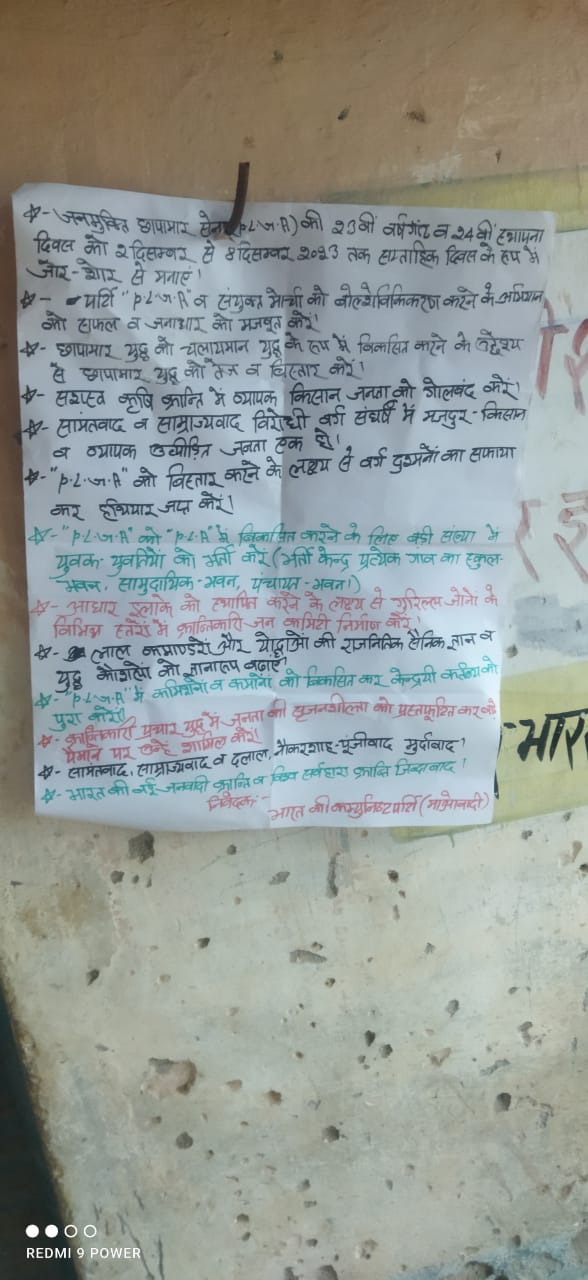 ☆- जनमुक्ति छापामार सेना (P.L.G.A) की 23वीं वर्षगांठ व 24वीं स्थापना
दिवस को 2 दिसम्बर से 8 दिसम्बर 2023 तक साप्ताहिक दिवस के रूप में
जोर-शोर से मनाएं!
☆- पार्टी "P.L.G.A" व संयुक्त मोर्चा को बोल्शेविकिकरण करने के अभियान
को सफल व जनाधार को मजबूत करें!
☆- छापामार युद्ध को चलायमान युद्ध के रूप में विकसित करने के उद्देश्य
से छापामार युद्ध को तेज व विस्तार करें!
☆- सशस्त्र कृषि क्रान्ति में व्यापक किसान जनता को गोलबंद करें!
☆- सामंतवाद व साम्राज्यवाद विरोधी वर्ग संघर्ष में मजदुर-किसान
व व्यापक उत्पीड़ित जनता एक हो!
☆- "P.L.G.A" को विस्तार करने के लक्ष्य से वर्ग दुश्मनों का सफाया
कर हथियार जप्त करें!
☆- "P.L.G.A" को "P.L.A" में विकसित करने के लिए बड़ी संख्या में
युवक-युवतियों को भर्ती करें (भर्ती केन्द्र प्रत्येक गांव का स्कुल-
भवन, सामुदायिक-भवन, पंचायत-भवन।)
☆- आधार इलाके को स्थापित करने के लक्ष्य से गुरिल्ला जोनो के
विभिन्न स्तरों में क्रान्तिकारी जन कमिटी निर्माण करें!
☆- लाल कमाण्डरों और योद्धाओं की राजनितिक सैनिक ज्ञान व
युद्ध कौशलों को बढ़ाएं!
☆- "P.L.G.A" में कमिशनों व कमानों को विकसित कर केन्द्रीय कर्तव्य को
पुरा करें!
☆- क्रान्तिकारी प्रचार युद्ध में जनता की सृजनशीलता को कर बड़े
पैमाने पर उन्हें शामिल करें!
☆- सामंतवाद, साम्राज्यवाद व दलाल, नौकरशाह-पूंजीवाद मुर्दाबाद!
☆- भारत की नई जनवादी क्रान्ति व विश्व सर्वहारा क्रान्ति जिन्दाबाद!
निवेदक:- भारत की कम्युनिस्ट पार्टी (माओवादी)
-भार
REDMI 9 POWER